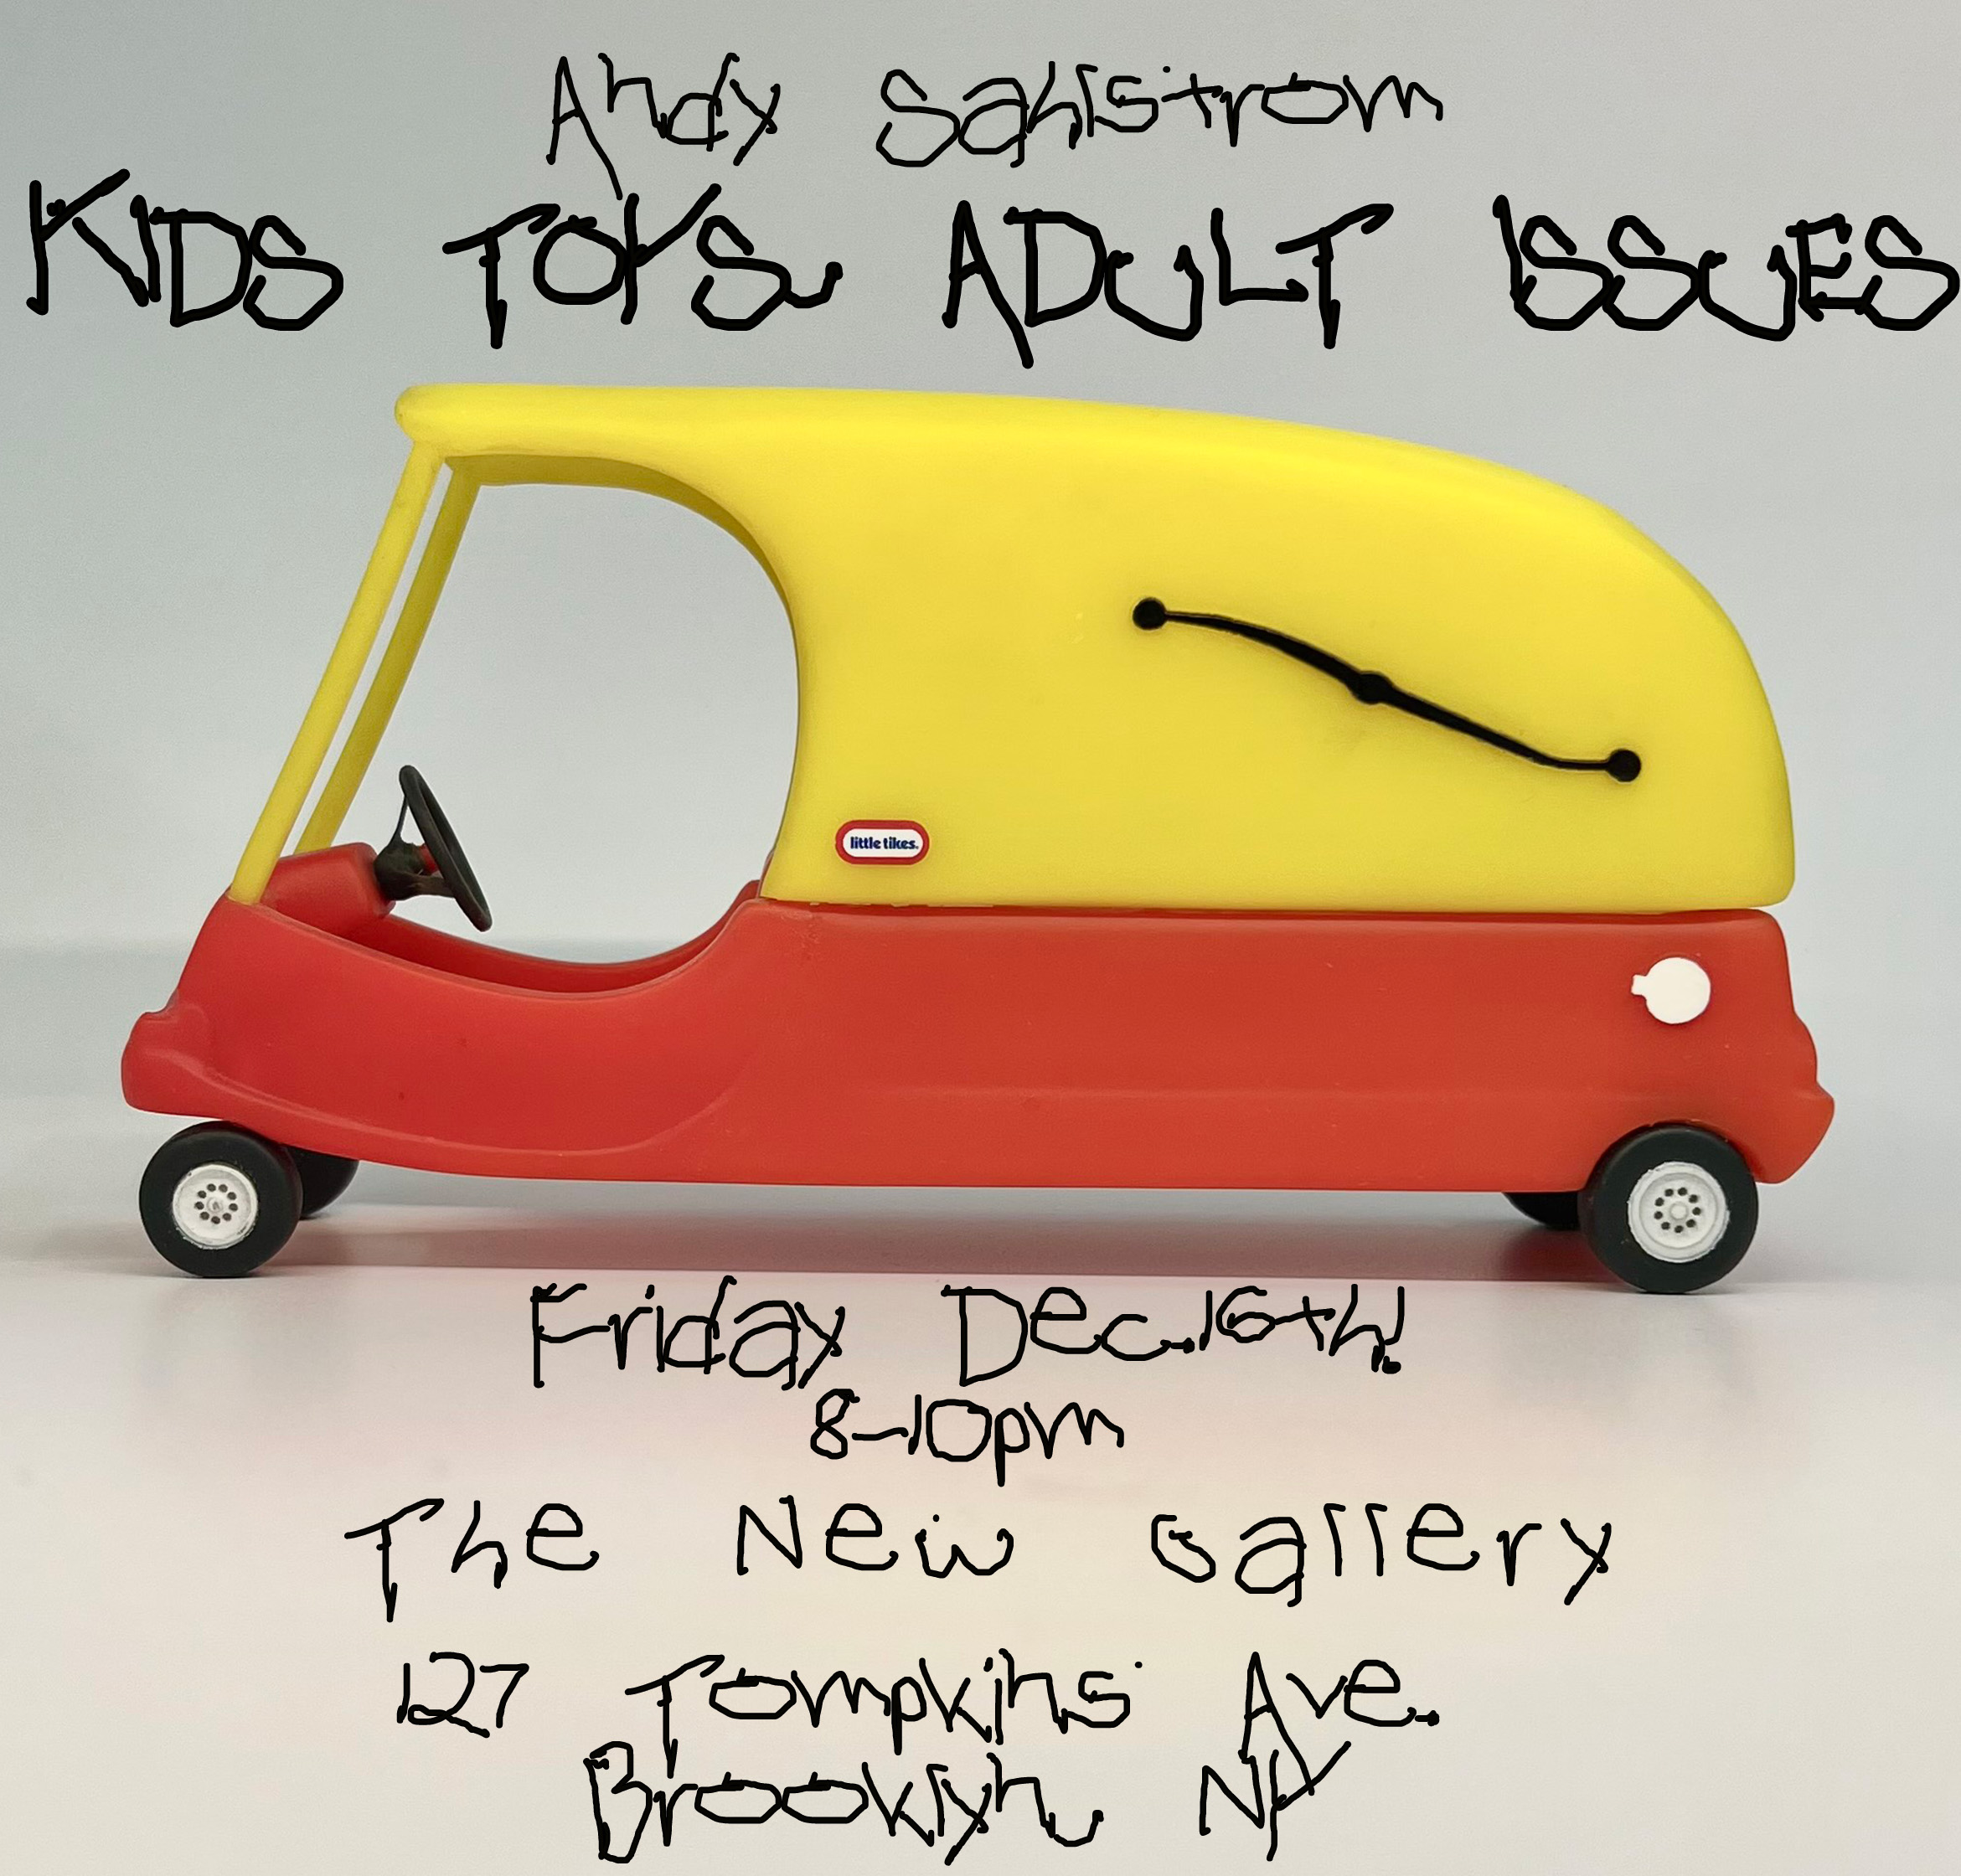 Andy Sahlstrom
KIDS TOYS, ADULT ISSUES
little tikes.
Friday Dec.16th!
8-10pm
The New Gallery
127 Tompkins Ave.
Brooklyn, NY